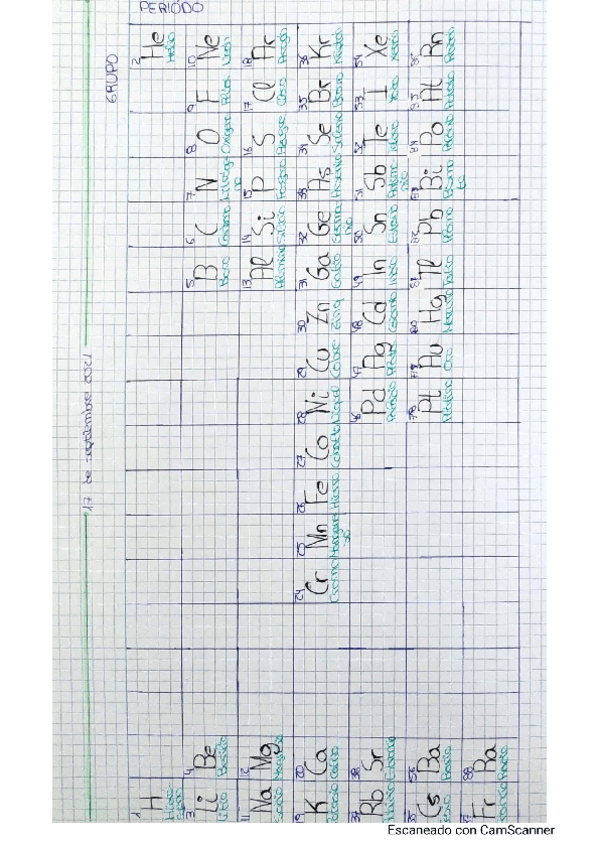 17 de septiembre 2021
GRUPO
PERIÓDO
1 2
H He
Helio
3 4 5 6 7 8 9 10
Li Be B C N O F Ne
Litio Berilio Boro Carbono Oxígeno Flúor Neón
11 12 13 14 15 16 17 18
Na Mg Al Si P S Cl Ar
Sodio Aluminio Silicio Fósforo Azufre Cloro Argón
19 20 24 25 26 27 28 29 30 31 32 33 34 35 36
K Ca Cr Mn Fe Co Ni Cu Zn Ga Ge As Se Br Kr
Potasio Calcio Cromo Hierro Cobalto Níquel Cobre Zinc Galio Arsénico Selenio Bromo
38 46 47 48 49 50 51 52 53 54
Rb Sr Pd Ag Cd In Sn Sb Te I Xe
Estroncio Paladio Plata Cadmio Indio Estaño Yodo Xenón
55 78 79 80 81 82 83 84 85 86
Cs Ba Pt Au Hg Tl Pb Bi Po At Rn
Bario Platino Oro Mercurio Talio Plomo Radón
88
Fr Ra
Radio
Escaneado con CamScanner